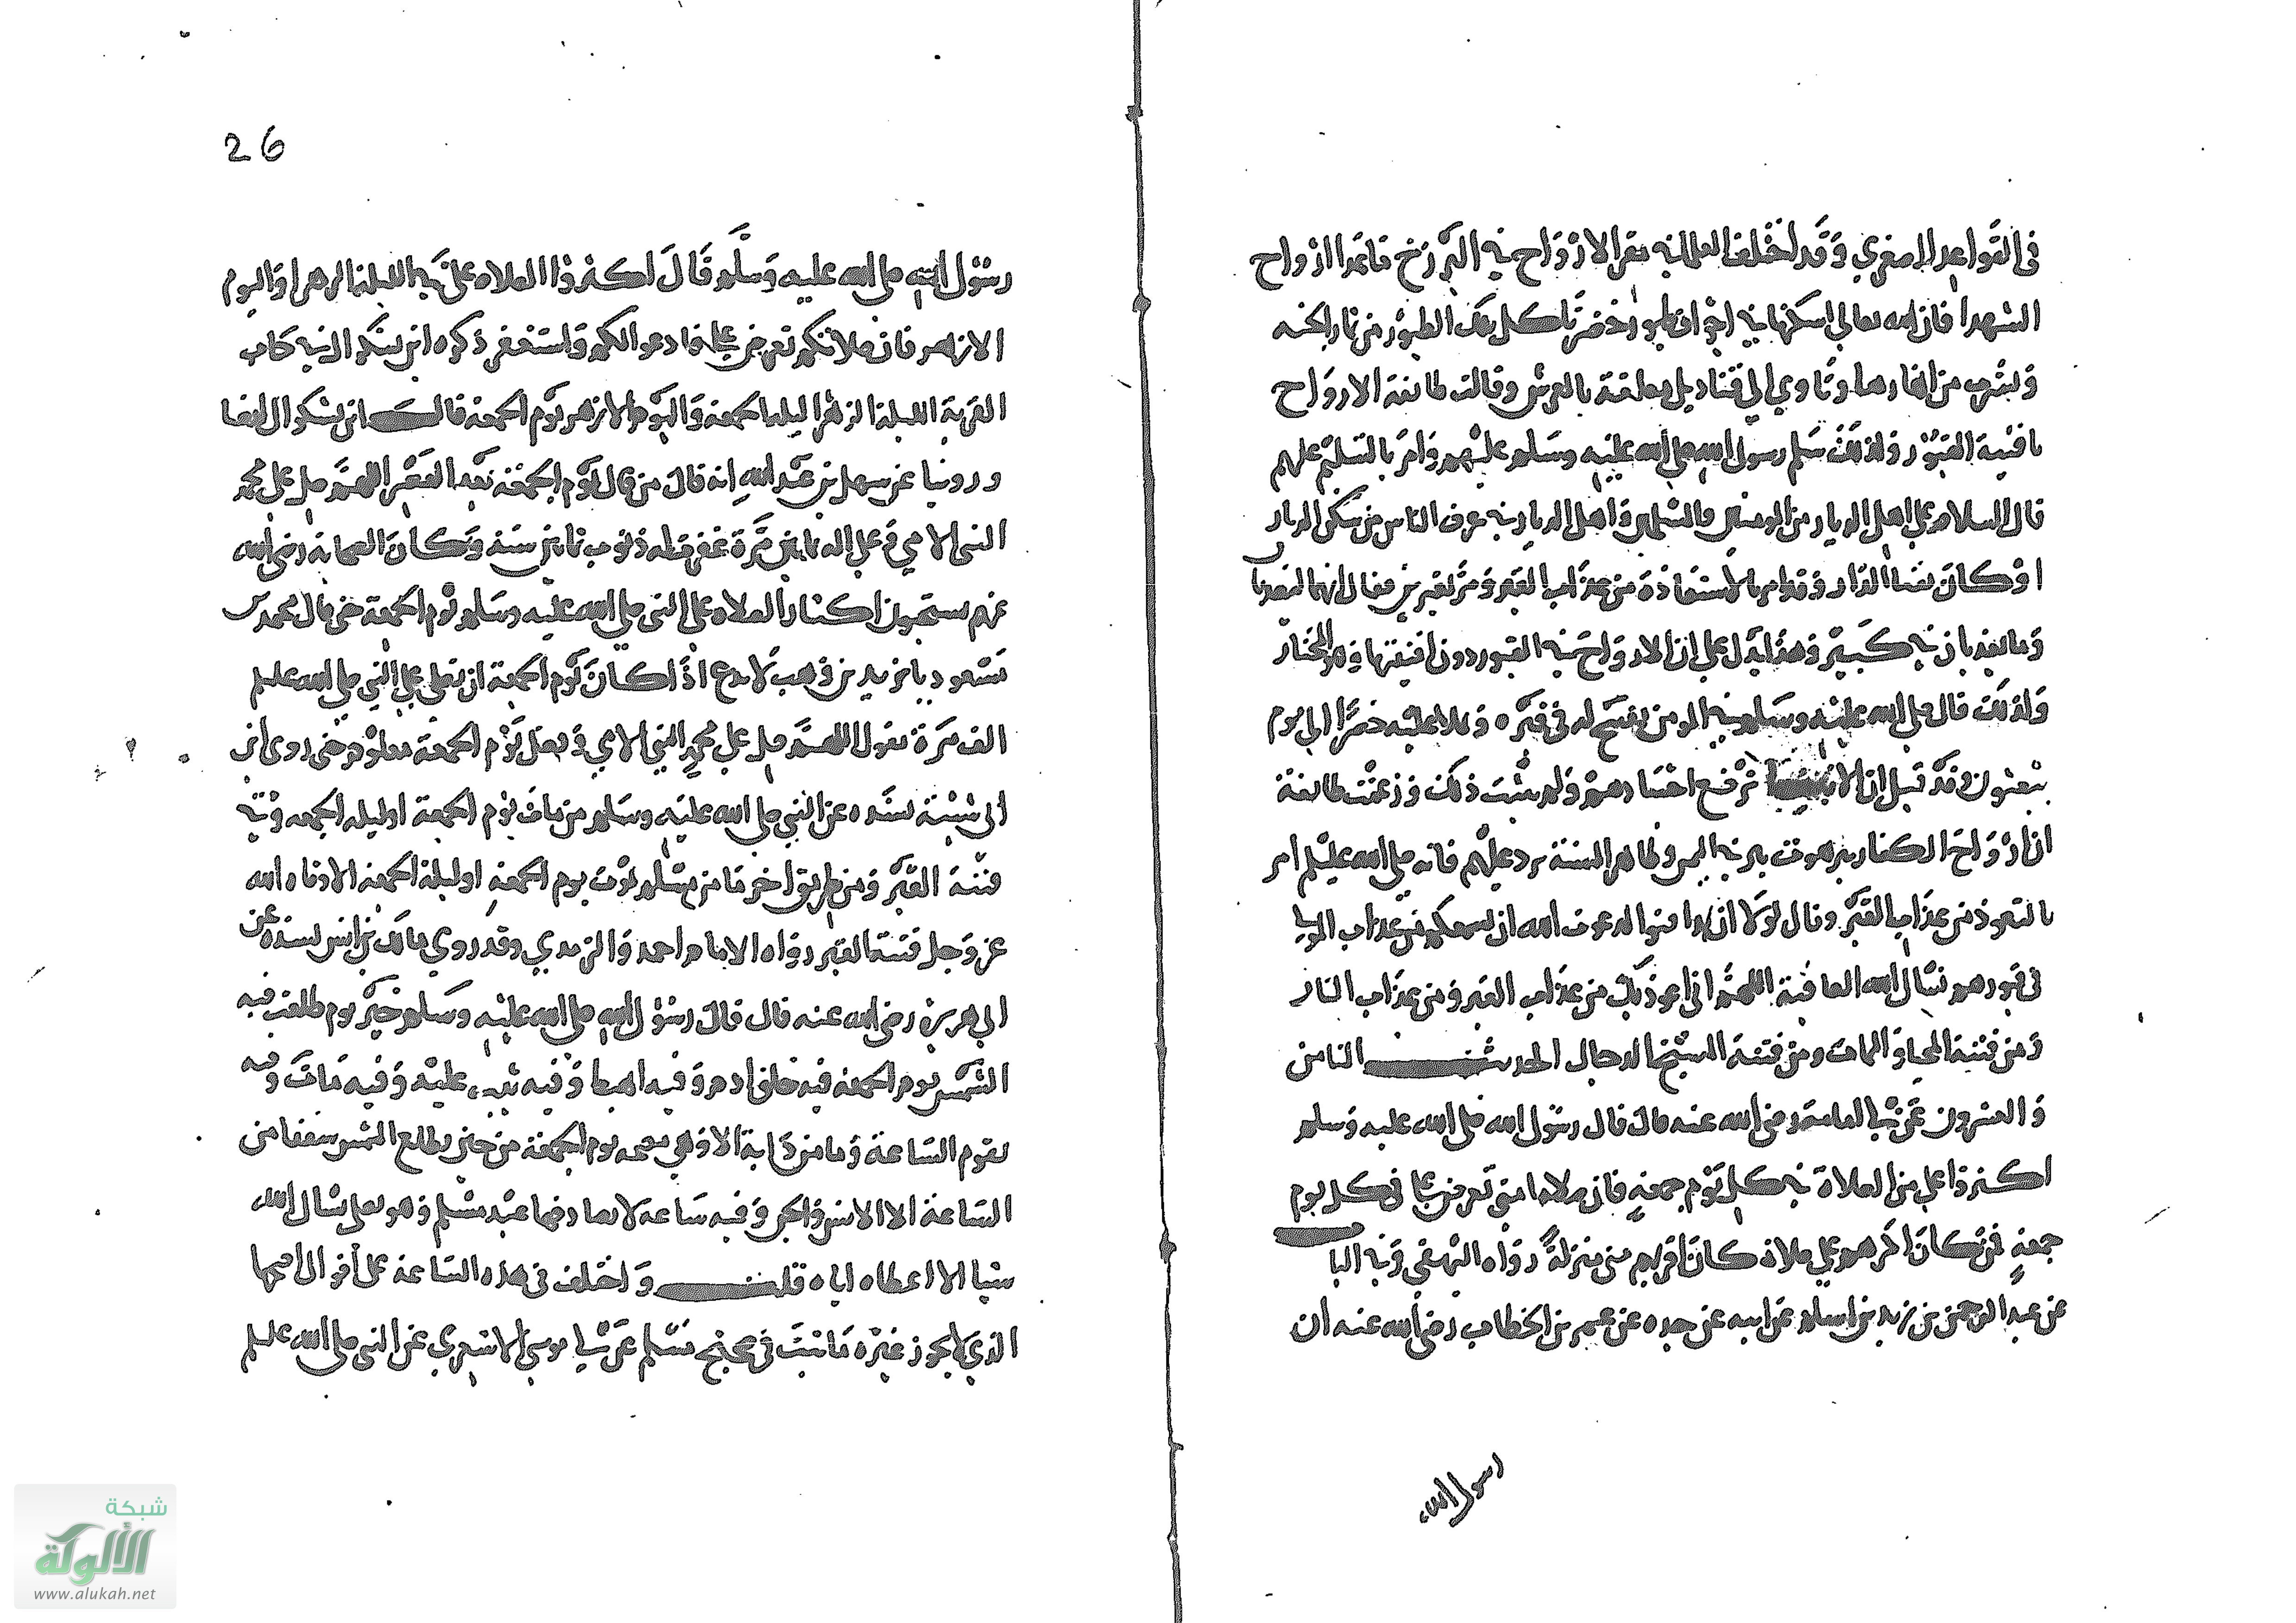 في القواعد الصغرى وقد اختلف العلماء في مقر الارواح في البرزخ فاما ارواح
الشهدا فان الله تعالى اسكنها في اجواف طيور خضر تاكل بتلك الطيور من ثمار الجنة
وتشرب من انهارها وتاوي الى قناديل معلقة بالعرش وقالت طائفة الارواح
بافنية القبور ولذلك سلم رسول الله صلى الله عليه وسلم عليهم وامر بالتسليم عليهم
قال السلام على اهل الديار من المومنين والمسلمين واهل الديار في عرف الناس من سكن الديار
او كان بفنا الدار وقد امر بالاستعاذة من عذاب القبر ومر بقبرين فقال انهما ليعذبان
وما يعذبان في كبير وهذا يدل على ان الارواح في القبور دون افنيتها وهو المختار
ولذلك قال صلى الله عليه وسلم في المومن يفسح له في قبره ويملا عليه خضرا الى يوم
يبعثون وقد قيل ان الانبيا ترفع اجسادهم ولم يثبت ذلك وزعمت طائفة
ان ارواح الكفار ببرهوت بير في اليمن وظاهر السنة يرد عليهم فانه صلى الله عليه وسلم امر
بالتعوذ من عذاب القبر وقال لولا ان تدافنوا لدعوت الله ان يسمعكم من عذاب الموتى
في قبورهم نسال الله العافية اللهم اني اعوذ بك من عذاب القبر ومن عذاب النار
ومن فتنة المحيا والممات ومن فتنة المسيح الدجال الحديث الثامن
والعشرون عن ابي امامة رضي الله عنه قال قال رسول الله صلى الله عليه وسلم
اكثروا علي من الصلاة في كل يوم جمعة فان صلاة امتي تعرض علي في كل يوم
جمعة فمن كان اكثرهم علي صلاة كان اقربهم مني منزلة رواه البيهقي وفي الباب
عن عبد الرحمن بن زيد بن اسلم عن ابيه عن جده عن عمر بن الخطاب رضي الله عنه ان
رسول الله
26
رسول الله صلى الله عليه وسلم قال اكثروا الصلاة علي في الليلة الزهرا واليوم
الازهر فان صلاتكم تعرض علي فادعو لكم واستغفر ذكره ابن بشكوال في كتاب
القربة الليلة الزهرا ليلة الجمعة واليوم الازهر يوم الجمعة قال ابن بشكوال ايضا
وروينا عن سهل بن عبد الله انه قال من قال يوم الجمعة بعد العصر اللهم صل على محمد
النبي الامي وعلى اله ثمانين مرة غفرت له ذنوب ثمانين سنة وكان الصحابة رضي الله
عنهم يستحبون اكثار الصلاة على النبي صلى الله عليه وسلم يوم الجمعة حتى قال محمد بن
مسعود يا زيد بن وهب لا تدع اذا كان يوم الجمعة ان تصلي على النبي صلى الله عليه وسلم
الف مرة تقول اللهم صل على محمد النبي الامي وفضل يوم الجمعة معلوم حتى روى ابن
ابي شيبة بسنده عن النبي صلى الله عليه وسلم من مات يوم الجمعة او ليلة الجمعة وقي
فتنة القبر ومن طريق اخر ما من مسلم يموت يوم الجمعة او ليلة الجمعة الا وقاه الله
عز وجل فتنة القبر رواه الامام احمد والترمذي وقد روى مالك بن انس بسنده عن
ابي هريرة رضي الله عنه قال قال رسول الله صلى الله عليه وسلم خير يوم طلعت فيه
الشمس يوم الجمعة فيه خلق ادم وفيه اهبط وفيه تيب عليه وفيه مات وفيه
تقوم الساعة وما من دابة الا وهي يوم الجمعة من حين تطلع الشمس شفقا من
الساعة الا الانس والجن وفيه ساعة لا يصادفها عبد مسلم وهو يصلي يسال الله
شيا الا اعطاه اياه قلت واختلف في هذه الساعة على اقوال اصحها
الذي لا يجوز غيره ما ثبت في صحيح مسلم عن ابي موسى الاشعري عن النبي صلى الله عليه وسلم
شبكة
الألوكة
www.alukah.net